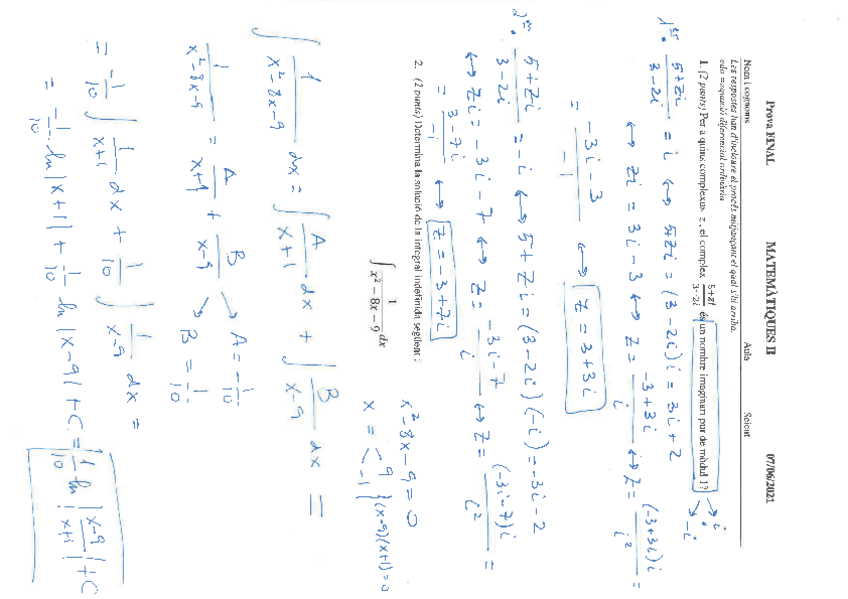 Prova FINAL MATEMÀTIQUES II 07/06/2021
Nom i cognoms Aula Seient
Les respostes han d'incloure el procés mitjançant el qual s'hi arriba.
edo = equació diferencial ordinària
1. (2 punts) Per a quins complexos z, el complex (5+zi)/(3-2i) és un nombre imaginari pur de mòdul 1? → i → -i
1er. (5+zi)/(3-2i) = i ↔ 5+zi = (3-2i)i = 3i+2
↔ zi = 3i-3 ↔ z = (-3+3i)/i ↔ z = (-3+3i)i/i² =
= (-3i-3)/-1 ↔ z = 3+3i
2on. (5+zi)/(3-2i) = -i ↔ 5+zi = (3-2i)(-i) = -3i-2
↔ zi = -3i-7 ↔ z = (-3i-7)/i ↔ z = (-3i-7)i/i² =
= (3-7i)/-1 ↔ z = -3+7i
2. (2 punts) Determina la solució de la integral indefinida següent:
∫ 1/(x² − 8x − 9) dx
x²-8x-9=0
x = < 9 -1 } (x-9)(x+1)=0
∫ 1/(x²-8x-9) dx = ∫ A/(x+1) dx + ∫ B/(x-9) dx =
1/(x²-8x-9) = A/(x+1) + B/(x-9) → A = -1/10
→ B = 1/10
= -1/10 ∫ 1/(x+1) dx + 1/10 ∫ 1/(x-9) dx =
= -1/10 ln|x+1| + 1/10 ln|x-9| + C = 1/10 ln|(x-9)/(x+1)| + C